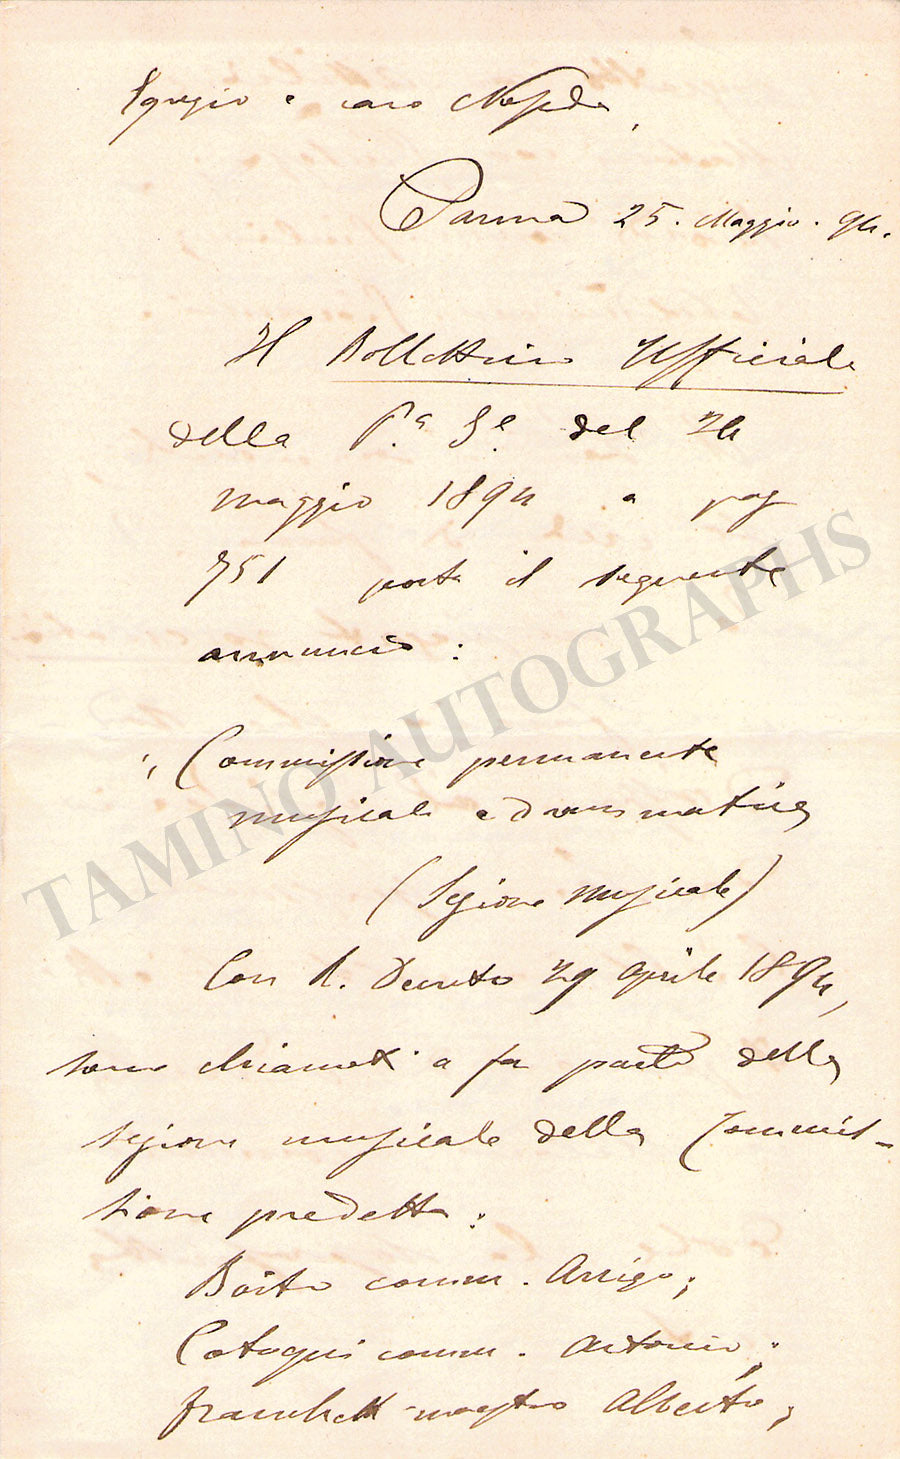 Egregio e caro
Parma 25. Maggio. 94.
Il Bollettino Ufficiale
della P.a I.e del 24
maggio 1894 a pag
751 porta il seguente
annuncio :
„ Commissione permanente
musicale e drammatica
(Sezione Musicale)
Con R. Decreto 29 Aprile 1894,
sono chiamati a far parte della
sezione musicale della Commis-
sione predetta :
Boito comm. Arrigo;
comm. Antonio;
Franchetti maestro Alberto;
TAMINO AUTOGRAPHS